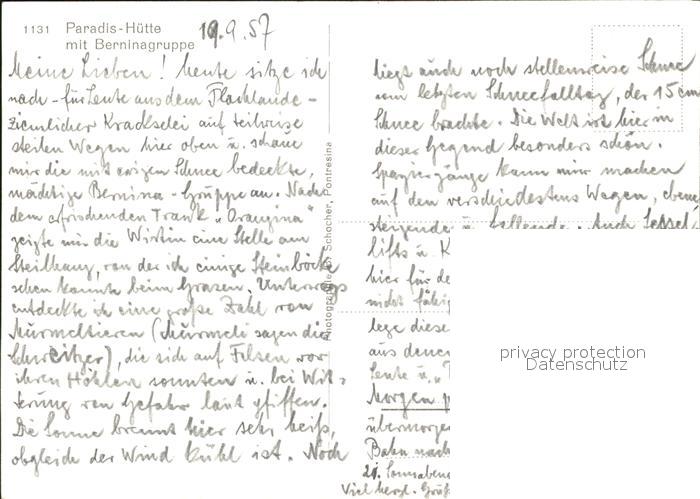 1131 Paradis-Hütte
mit Berninagruppe
19.9.57
Meine Lieben! Heute sitze ich
nach - für Leute aus dem Flachlande -
ziemlicher Kradkselei auf teilweise
steilen Wegen hier oben u. schaue
mir die mit ewigem Schnee bedeckte,
mächtige Bernina-Gruppe an. Nach
dem erfrischenden Trank „Orangina"
zeigte mir die Wirtin eine Stelle am
Steilhang, von der ich einige Steinböcke
sehen konnte beim Grasen. Unterwegs
entdeckte ich eine große Zahl von
Murmeltieren (Murmeli sagen die
Schweitzer), die sich auf Felsen vor
ihren Höhlen sonnten u. bei Wit-
terung von Gefahr laut pfiffen.
Die Sonne brennt hier sehr heiß,
obgleich der Wind kühl ist. Noch
Photographie B. Schocher, Pontresina
liegt auch noch stellenweise Schnee
vom letzten Schneefalltag, der 15 cm
Schnee brachte. Die Welt ist hier in
dieser Gegend besonders schön.
Spaziergänge kann mir machen
auf den verschiedensten Wegen, ebene,
steigende u. fallende. Auch Sessel-
lifts u. K
hier für de
nicht fähig
lege diese
aus denen
Leute u.
Morgen
übermorge
Bahn nach
21. Sonnabend
Viel herzl. Grüß
privacy protection
Datenschutz